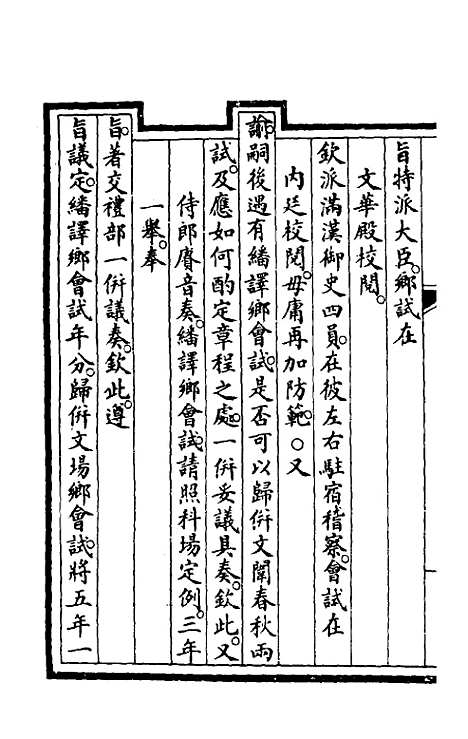 旨特派大臣。鄉試在
文華殿校閱。
欽派滿漢御史四員。在彼左右駐宿稽察。會試在
內廷校閱。毋庸再加防範。○又
諭。嗣後遇有繙譯鄉會試。是否可以歸併文闈春秋兩
試。及應如何酌定章程之處。一併妥議具奏。欽此。又
侍郎賡音奏。繙譯鄉會試。請照科場定例。三年
一舉。奉
旨。著交禮部一併議奏。欽此。遵
旨議定。繙譯鄉會試年分。歸併文場鄉會試。將五年一